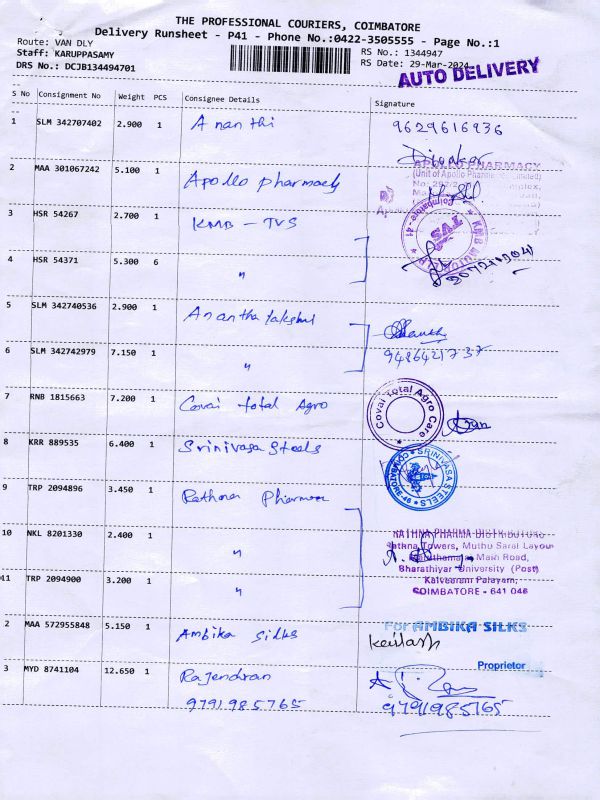 THE PROFESSIONAL COURIERS, COIMBATORE
Delivery Runsheet - P41 - Phone No.:0422-3505555 - Page No.:1
Route: VAN DLY
Staff: KARUPPASAMY
DRS No.: DCJB134494701
RS No.: 1344947
RS Date: 29-Mar-2024
AUTO DELIVERY
S No Consignment No Weight PCS Consignee Details Signature
1 SLM 342707402 2.900 1 Ananthi 9629616936
Diwakar
2 MAA 301067242 5.100 1 Apollo pharmacy
APOLLO PHARMACY
(Unit of Apollo Pharmacies Limited)
3 HSR 54267 2.700 1 KMB - TVS
COIMBATORE - 41
TVS
4 HSR 54371 5.300 6 "
5 SLM 342740536 2.900 1 Ananthalakshmi
6 SLM 342742979 7.150 1 "
9486421737
7 RNB 1815663 7.200 1 Covai total Agro
Covai Total Agro Care
8 KRR 889535 6.400 1 Srinivasa Steels
SRINIVASA STEELS
COIMBATORE-46
9 TRP 2094896 3.450 1 Rathna Pharma
10 NKL 8201330 2.400 1 "
RATHNA PHARMA DISTRIBUTORS
Rathna Towers, Muthu Saral Layout
Maruthamalai Main Road,
Bharathiyar University (Post)
Kalveeram Palayam,
COIMBATORE - 641 046
11 TRP 2094900 3.200 1 "
2 MAA 572955848 5.150 1 Ambika silks
For AMBIKA SILKS
Kailash
Proprietor
3 MYD 8741104 12.650 1 Rajendran
9791985765
9791985765